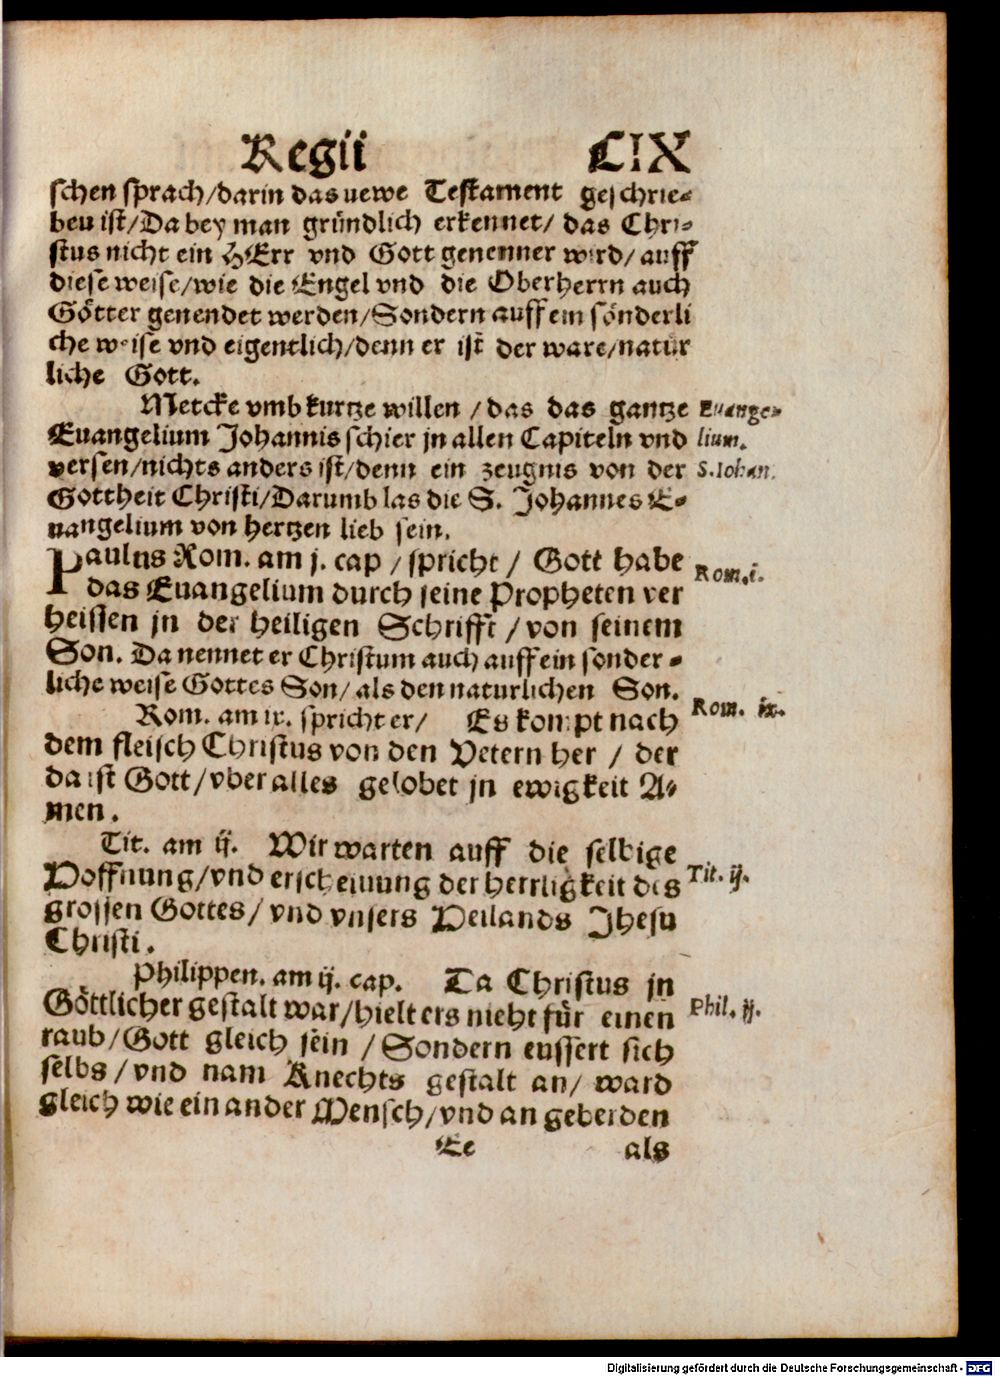 Regii CIX
schen sprach/darin das uewe Testament geschrie-
beu ist/Da bey man gründlich erkennet/ das Chri-
stus nicht ein HErr vnd Gott genenner wird/ auff
diese weise/wie die Engel vnd die Oberherrn auch
Götter genendet werden/Sondern auff ein sönderli
che weise vnd eigentlich/denn er ist der ware/natür
liche Gott.
Metcke vmb kurtze willen /das das gantze Euange-
Euangelium Johannis schier jn allen Capiteln vnd lium.
versen/nichts anders ist/denn ein zeugnis von der S. Iohan.
Gottheit Christi/Darumb las die S. Johannes E-
uangelium von hertzen lieb sein.
Paulus Rom. am j. cap /spricht / Gott habe Rom. i.
das Euangelium durch seine Propheten ver
heissen jn der heiligen Schrifft /von seinem
Son. Da nennet er Christum auch auff ein sonder-
liche weise Gottes Son/ als den naturlichen Son.
Rom. am ix. spricht er/ Es kompt nach Rom. ix.
dem fleisch Christus von den Vetern her / der
da ist Gott/vber alles gelobet jn ewigkeit A-
men.
Tit. am ij. Wir warten auff die selbige
Hoffnung/vnd erscheinung der herrligkeit des Tit. ij.
grossen Gottes/ vnd vnsers Heilands Jhesu
Christi.
Philippen. am ij. cap. Da Christus jn
Göttlicher gestalt war/hielt ers nicht für einen Phil. ij.
raub/Gott gleich sein /Sondern eussert sich
selbs/vnd nam Knechts gestalt an/ ward
gleich wie ein ander Mensch/vnd an geberden
Ee als
Digitalisierung gefördert durch die Deutsche Forschungsgemeinschaft - DFG